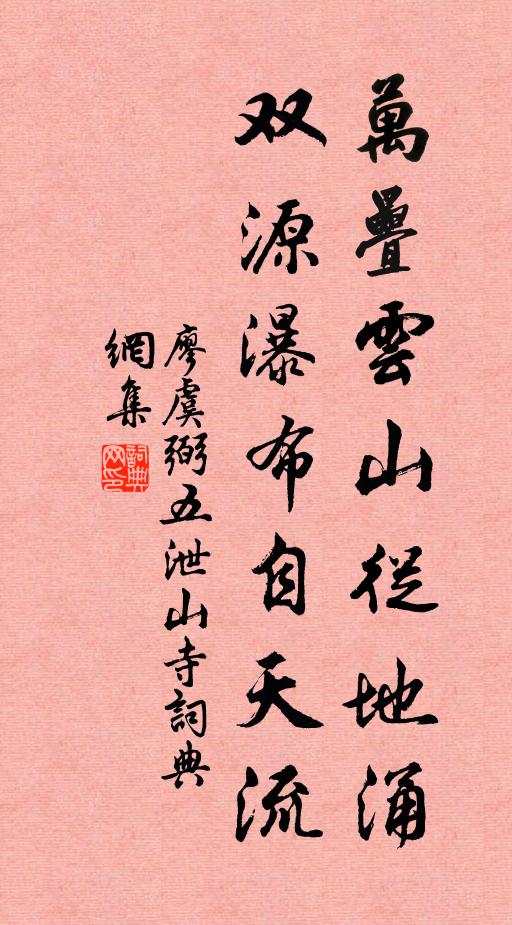 萬疊雲山從地涌
双源瀑布自天流
廖虞弼五泄山寺詞典
網集
詞典網印